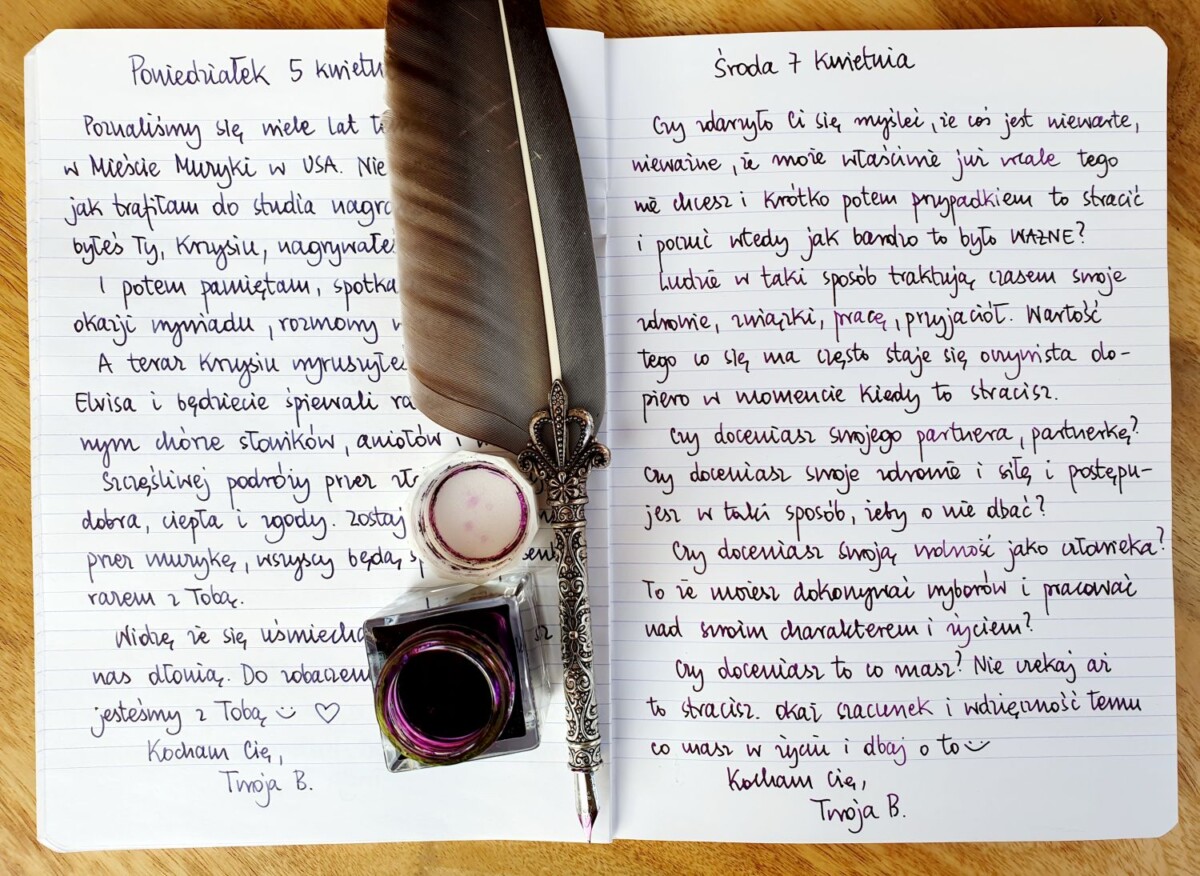 Poniedziałek 5 kwietn
Poznaliśmy się wiele lat te
w Mieście Muzyki w USA. Nie
jak trafiłam do studia nagra
byłeś Ty, Krzysiu, nagrywałe
I potem pamiętam, spotka
okazji wywiadu, rozmowy w
A teraz Krzysiu wyruszyłe
Elvisa i będziecie śpiewali ra
nym chórze słowików, aniołów i
Szczęśliwej podróży przez
dobra, ciepła i zgody. Zostaj
przez muzykę, wszyscy będą
razem z Tobą.
Widzę że się uśmiecha sz
nas dłonią. Do zobaczen
jesteśmy z Tobą
Kocham Cię,
Twoja B.
Środa 7 kwietnia
Czy zdarzyło Ci się myśleć, że coś jest niewarte,
nieważne, że może właściwie już wcale tego
nie chcesz i krótko potem przypadkiem to stracić
i poczuć wtedy jak bardzo to było WAŻNE?
Ludzie w taki sposób traktują czasem swoje
zdrowie, związki, pracę, przyjaciół. Wartość
tego co się ma często staje się oczywista do-
piero w momencie kiedy to stracisz.
Czy doceniasz swojego partnera, partnerkę?
Czy doceniasz swoje zdrowie i siłę i postępu-
jesz w taki sposób, żeby o nie dbać?
Czy doceniasz swoją wolność jako człowieka?
To że możesz dokonywać wyborów i pracować
nad swoim charakterem i życiem?
Czy doceniasz to co masz? Nie czekaj aż
to stracisz. Okaż szacunek i wdzięczność temu
co masz w życiu i dbaj o to
Kocham Cię,
Twoja B.